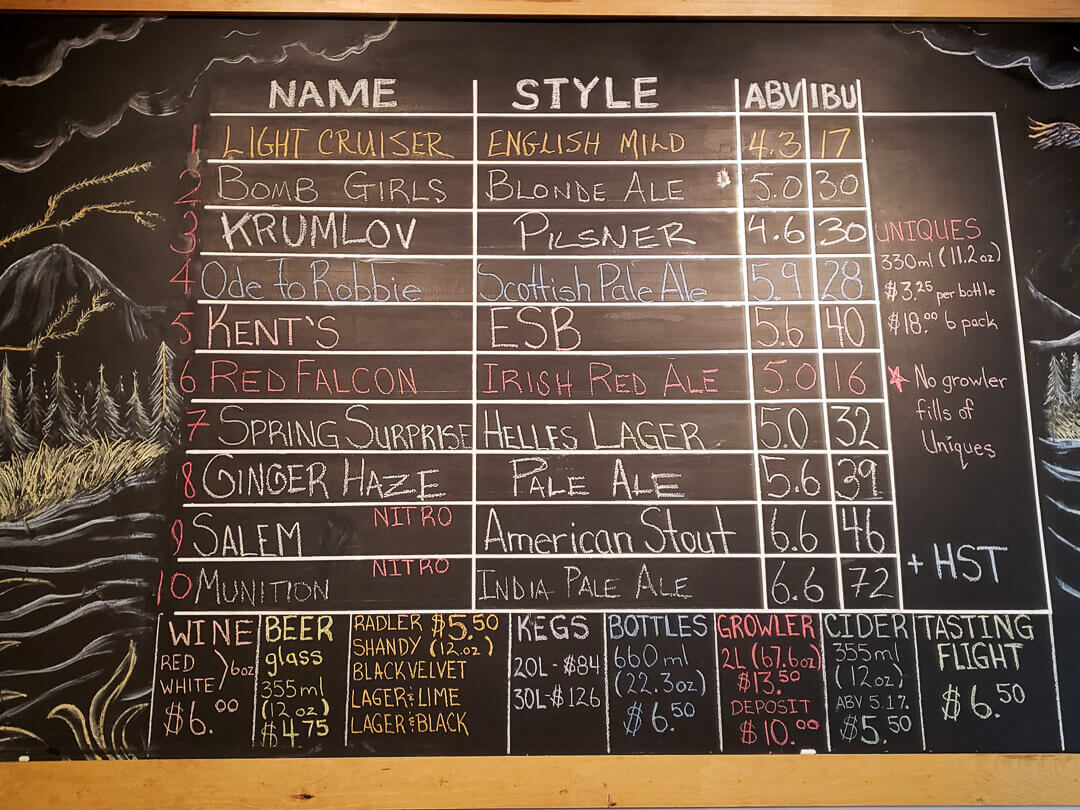 NAME STYLE ABV IBU
1 LIGHT CRUISER ENGLISH MILD 4.3 17
2 BOMB GIRLS BLONDE ALE 5.0 30
3 KRUMLOV PILSNER 4.6 30
4 Ode to Robbie Scottish Pale Ale 5.9 28
5 KENT'S ESB 5.6 40
6 RED FALCON IRISH RED ALE 5.0 16
7 SPRING SURPRISE HELLES LAGER 5.0 32
8 GINGER HAZE PALE ALE 5.6 39
9 SALEM NITRO American Stout 6.6 46
10 MUNITION NITRO INDIA PALE ALE 6.6 72
UNIQUES
330ml (11.2oz)
$3.25 per bottle
$18.00 6 pack
* No growler
fills of
Uniques
+ HST
WINE
RED
WHITE
6oz
$6.00
BEER
glass
355ml
(12 oz)
$4.75
RADLER $5.50
SHANDY (12.oz)
BLACKVELVET
LAGER & LIME
LAGER & BLACK
KEGS
20L - $84
30L - $126
BOTTLES
660ml
(22.3oz)
$6.50
GROWLER
2L (67.6oz)
$13.50
DEPOSIT
$10.00
CIDER
355ml
(12oz)
ABV 5.1%
$5.50
TASTING
FLIGHT
$6.50